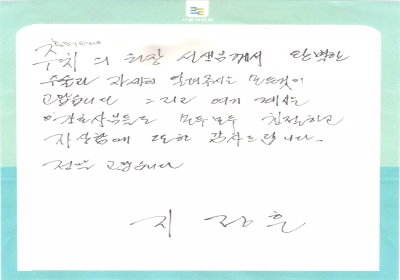 주치의 원장 선생님께서 완벽한
수술과 자세히 알려주시는 모든것이
고맙습니다 그리고 여기 계시는
간호사분들도 모두모두 친절하고
자상함에 또한 감사드립니다.
정말 고맙습니다
지 정훈